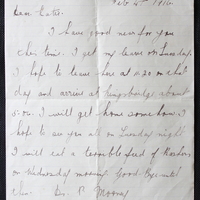 Feb 4th 1916
Dear Estes.
I have good news for you
this time. I get my leave on Tuesday.
I hope to leave here at 8.20 on that
day and arrive at Kingsbridge about
5.00. I will get home somehow. I
hope to see you all on Tuesday night
I will eat a terrible feed of Rashers
on Wednesday morning Good Bye until
then